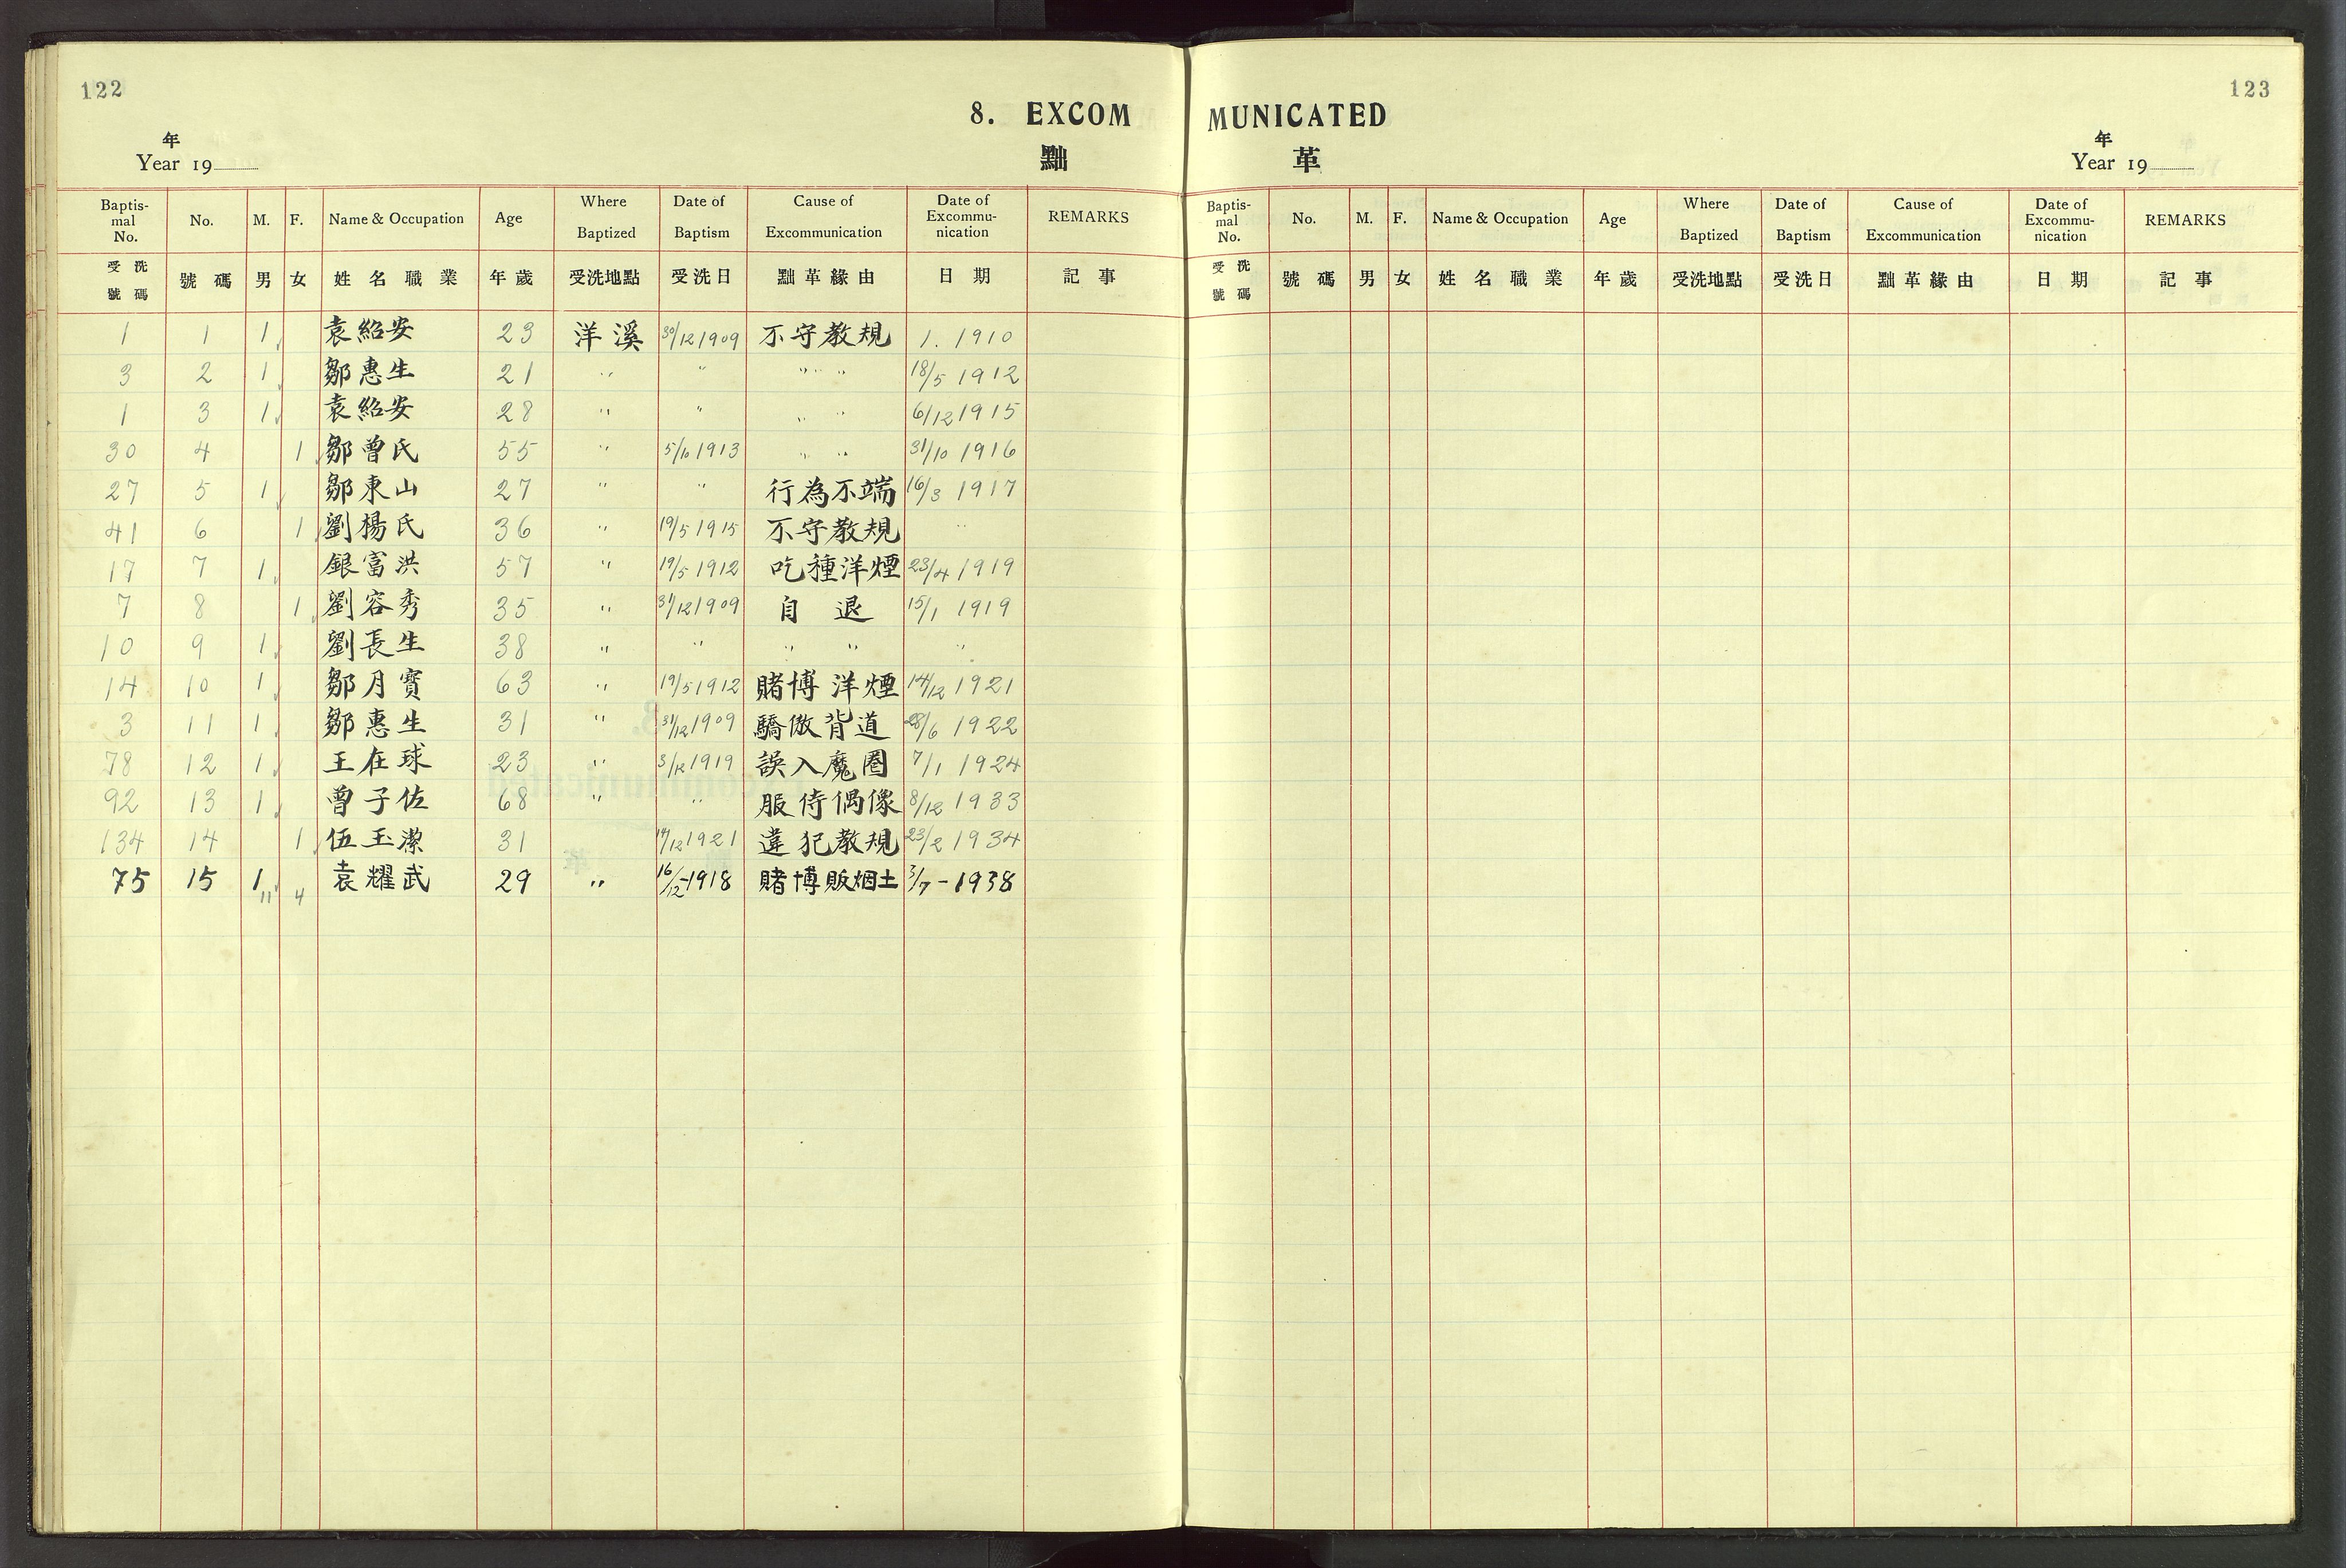 122
123
8. EXCOMMUNICATED
黜 革
年
Year 19
年
Year 19
Baptismal No. No. M. F. Name & Occupation Age Where Baptized Date of Baptism Cause of Excommunication Date of Excommunication REMARKS
受洗號碼 號碼 男 女 姓名職業 年歲 受洗地點 受洗日 黜革緣由 日期 記事
1 1 1 袁紹安 23 洋溪 30/12 1909 不守教規 1. 1910
3 2 1 鄒惠生 21 " " " " 18/5 1912
1 3 1 袁紹安 28 " " " " 6/12 1915
30 4 1 鄒曾氏 55 " 5/10 1913 " " 31/10 1916
27 5 1 鄒東山 27 " " 行為不端 16/3 1917
41 6 1 劉楊氏 36 " 19/5 1915 不守教規 "
17 7 1 銀富洪 57 " 19/5 1912 吃種洋煙 23/4 1919
7 8 1 劉容秀 35 " 31/12 1909 自退 15/1 1919
10 9 1 劉長生 38 " " " " "
14 10 1 鄒月寶 63 " 19/5 1912 賭博洋煙 14/12 1921
3 11 1 鄒惠生 31 " 31/12 1909 驕傲背道 28/6 1922
78 12 1 王在球 23 " 3/12 1919 誤入魔圈 7/1 1924
92 13 1 曾子佐 68 " " 服侍偶像 8/12 1933
134 14 1 伍玉潔 31 17/12 1921 違犯教規 23/2 1934
75 15 1 袁耀武 29 " 16/12-1918 賭博販烟土 3/7-1938
11 4
Baptismal No. No. M. F. Name & Occupation Age Where Baptized Date of Baptism Cause of Excommunication Date of Excommunication REMARKS
受洗號碼 號碼 男 女 姓名職業 年歲 受洗地點 受洗日 黜革緣由 日期 記事